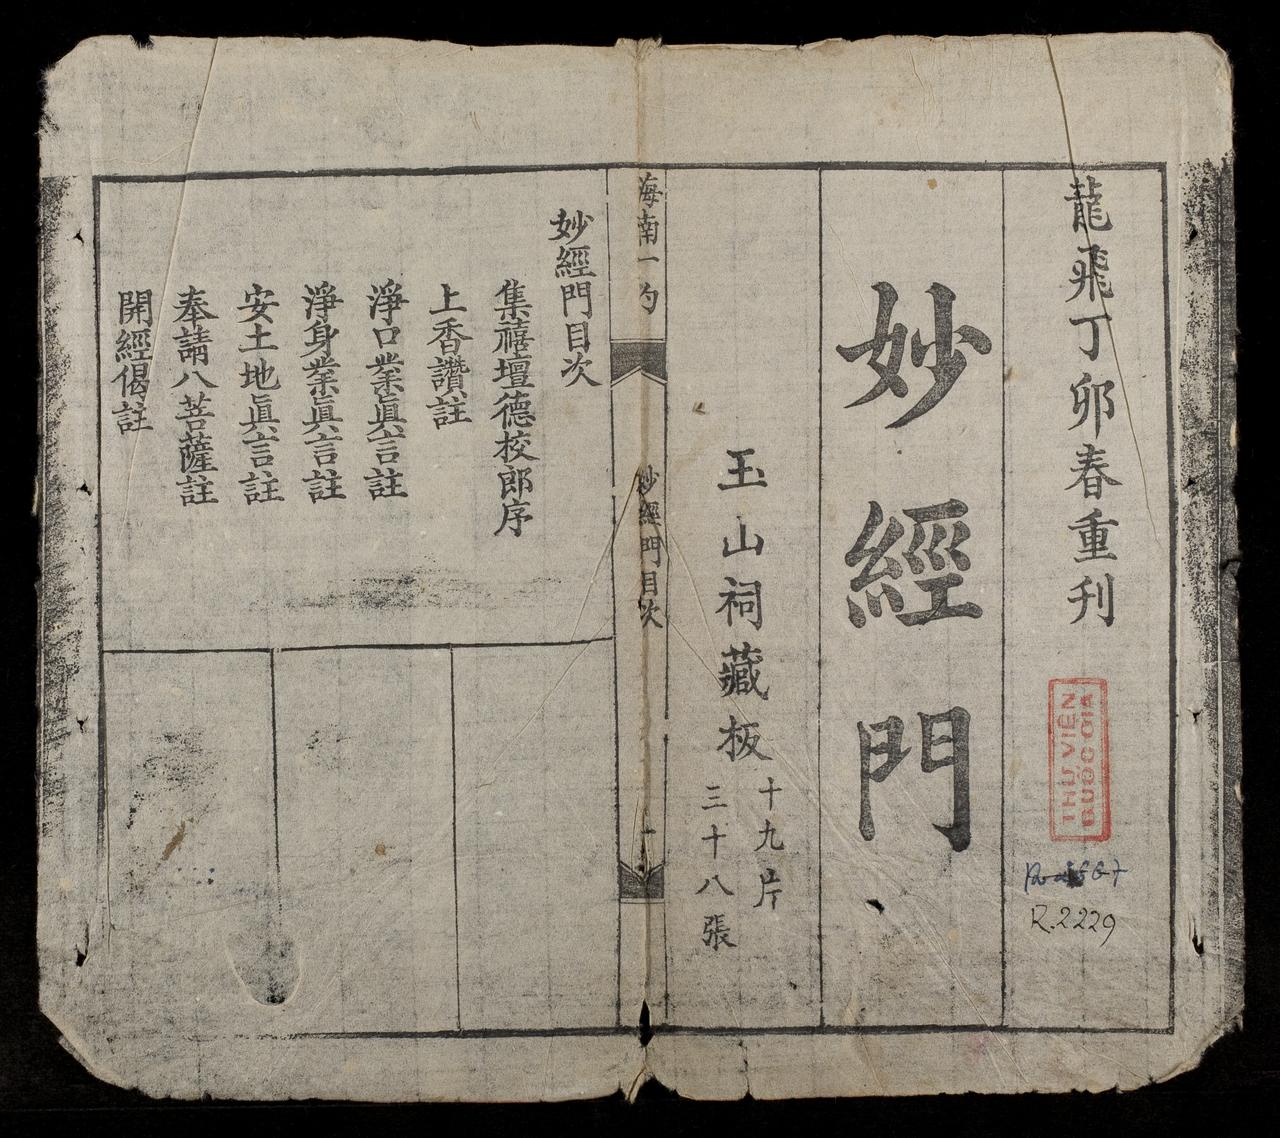 龍飛丁卯春重刊
THƯ VIỆN
QUỐC GIA
R.2229
妙經門
玉山祠藏板
十九片
三十八張
海南一勺
妙經門目次
一
妙經門目次
集禧壇德校郎序
上香讚註
淨口業眞言註
淨身業眞言註
安土地眞言註
奉請八菩薩註
開經偈註